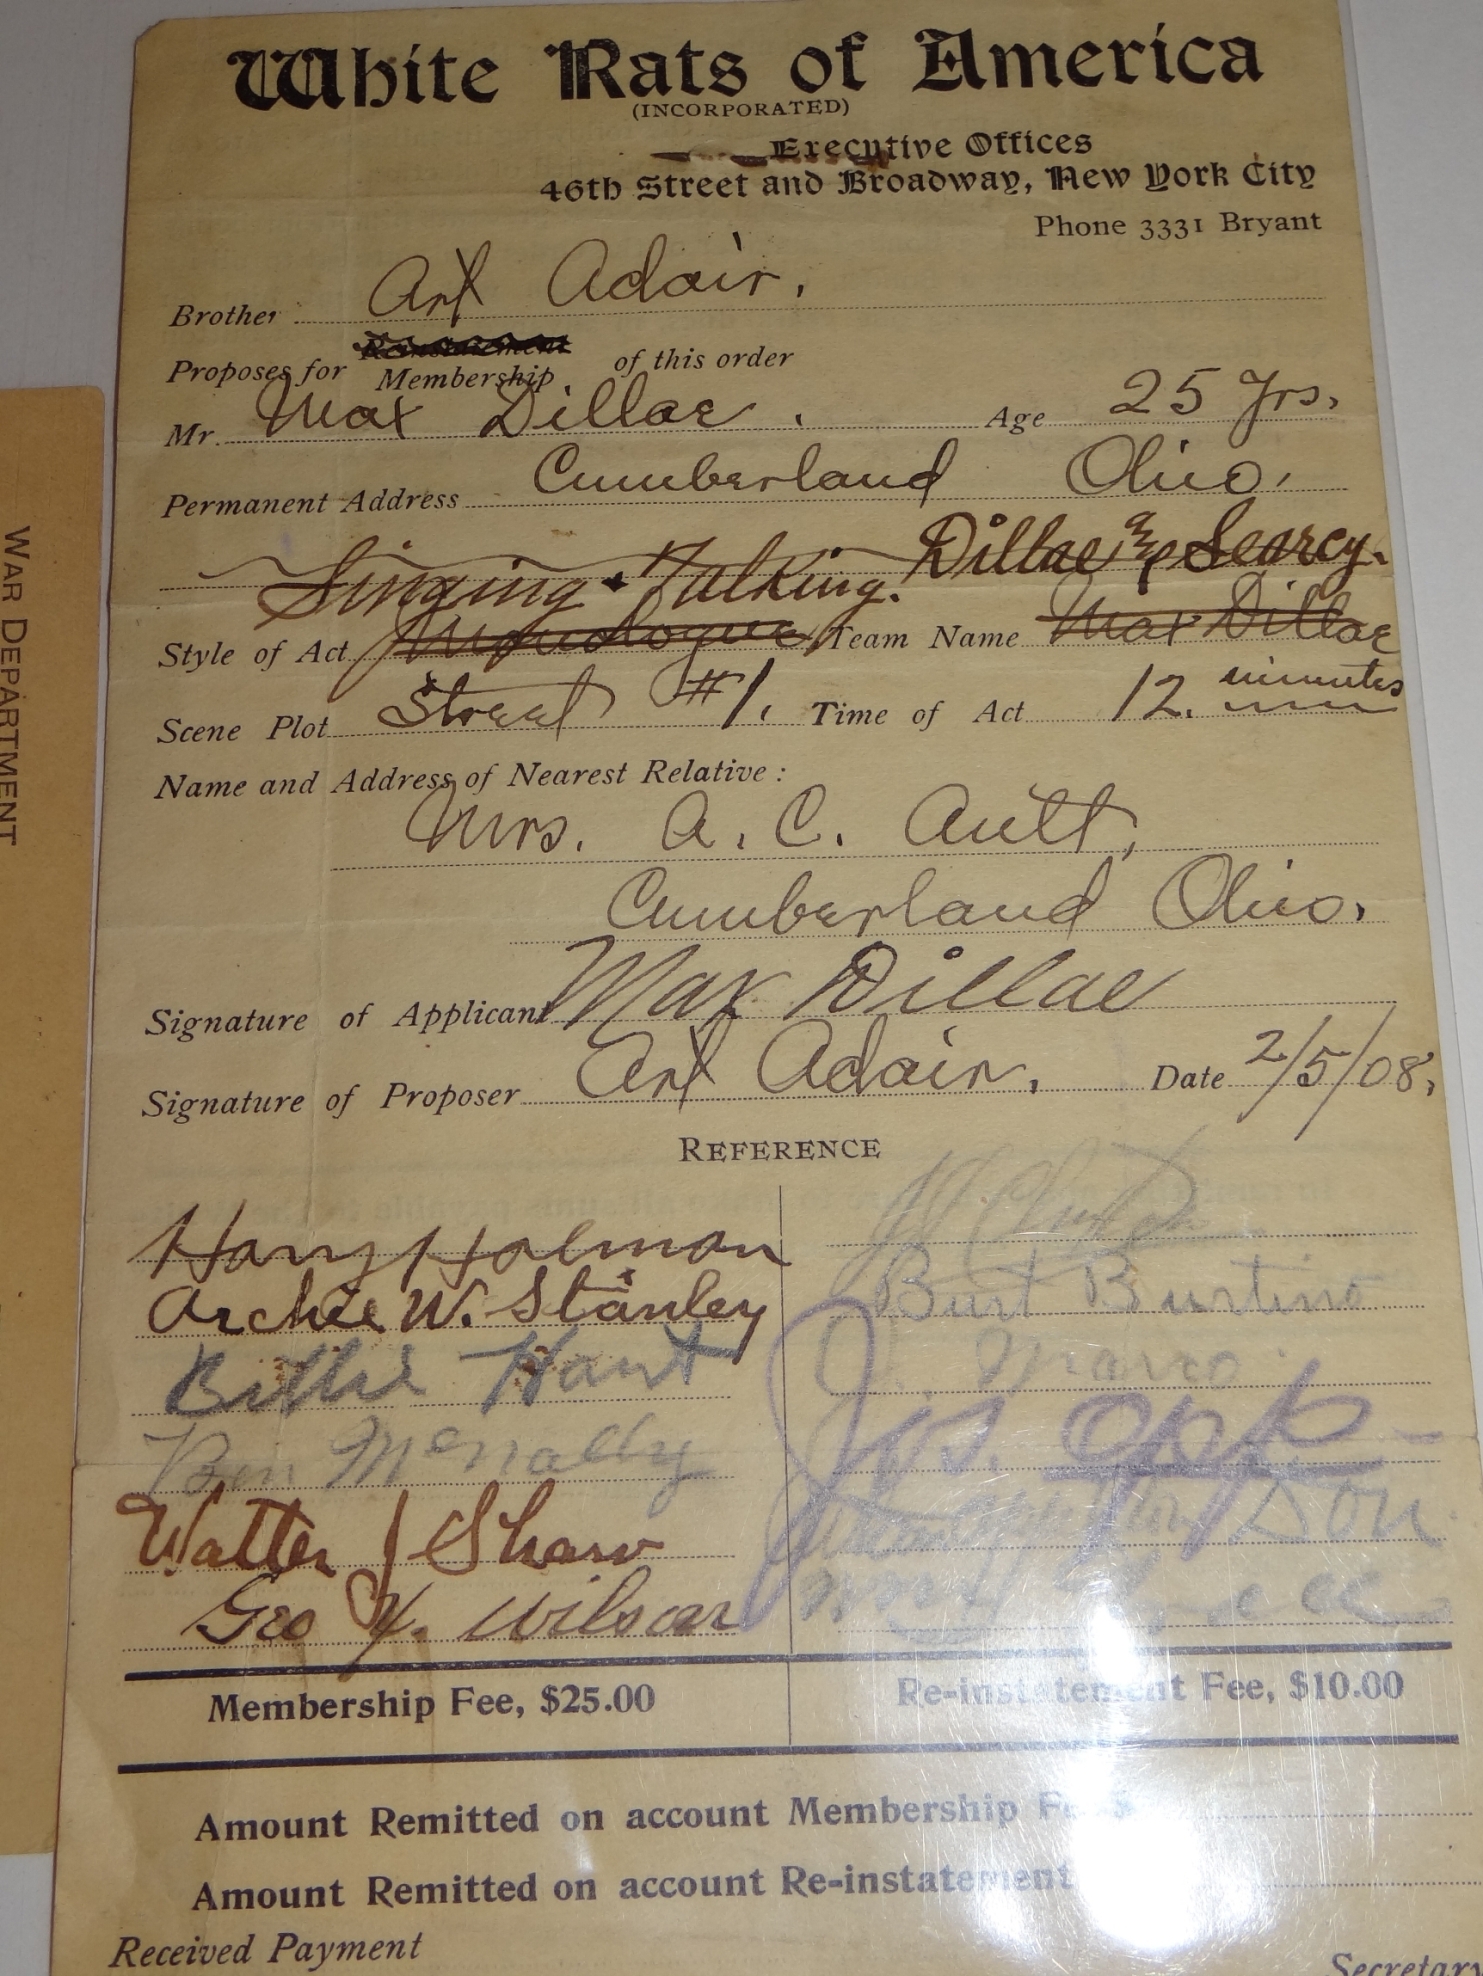 White Rats of America
(INCORPORATED)
Executive Offices
46th Street and Broadway, New York City
Phone 3331 Bryant
Brother Art Adair.
Proposes for Reinstatement Membership of this order
Mr. Max Dillae. Age 25 Yrs.
Permanent Address Cumberland Ohio.
Singing & Talking. Dillae & Searcy.
Style of Act Monologue Team Name Max Dillae
Scene Plot Street #1. Time of Act 12. minutes
Name and Address of Nearest Relative:
Mrs. A. C. Autt,
Cumberland Ohio.
Signature of Applicant Max Dillae
Signature of Proposer Art Adair. Date 2/5/08.
REFERENCE
Harry Holman
Archie W. Stanley
Billie Hart
Ben McNally
Walter J Shaw
Geo X. Wilson
Burt Burtino
J. Marco
Jos. Opp
Don
Membership Fee, $25.00
Re-instatement Fee, $10.00
Amount Remitted on account Membership
Amount Remitted on account Re-instatement
Received Payment
Secretary
WAR DEPARTMENT